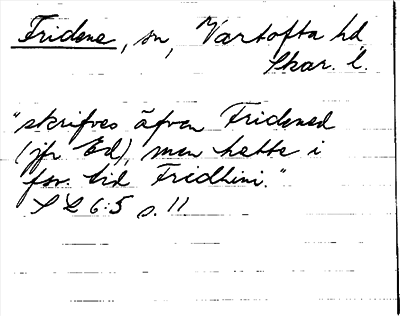 Fridene, sn, Vartofta hd
Skar. l.
"skrifves äfven Fridened
(jfr Ed), men hette i
for. tid Fridhini."
SL 6:5 s. 11